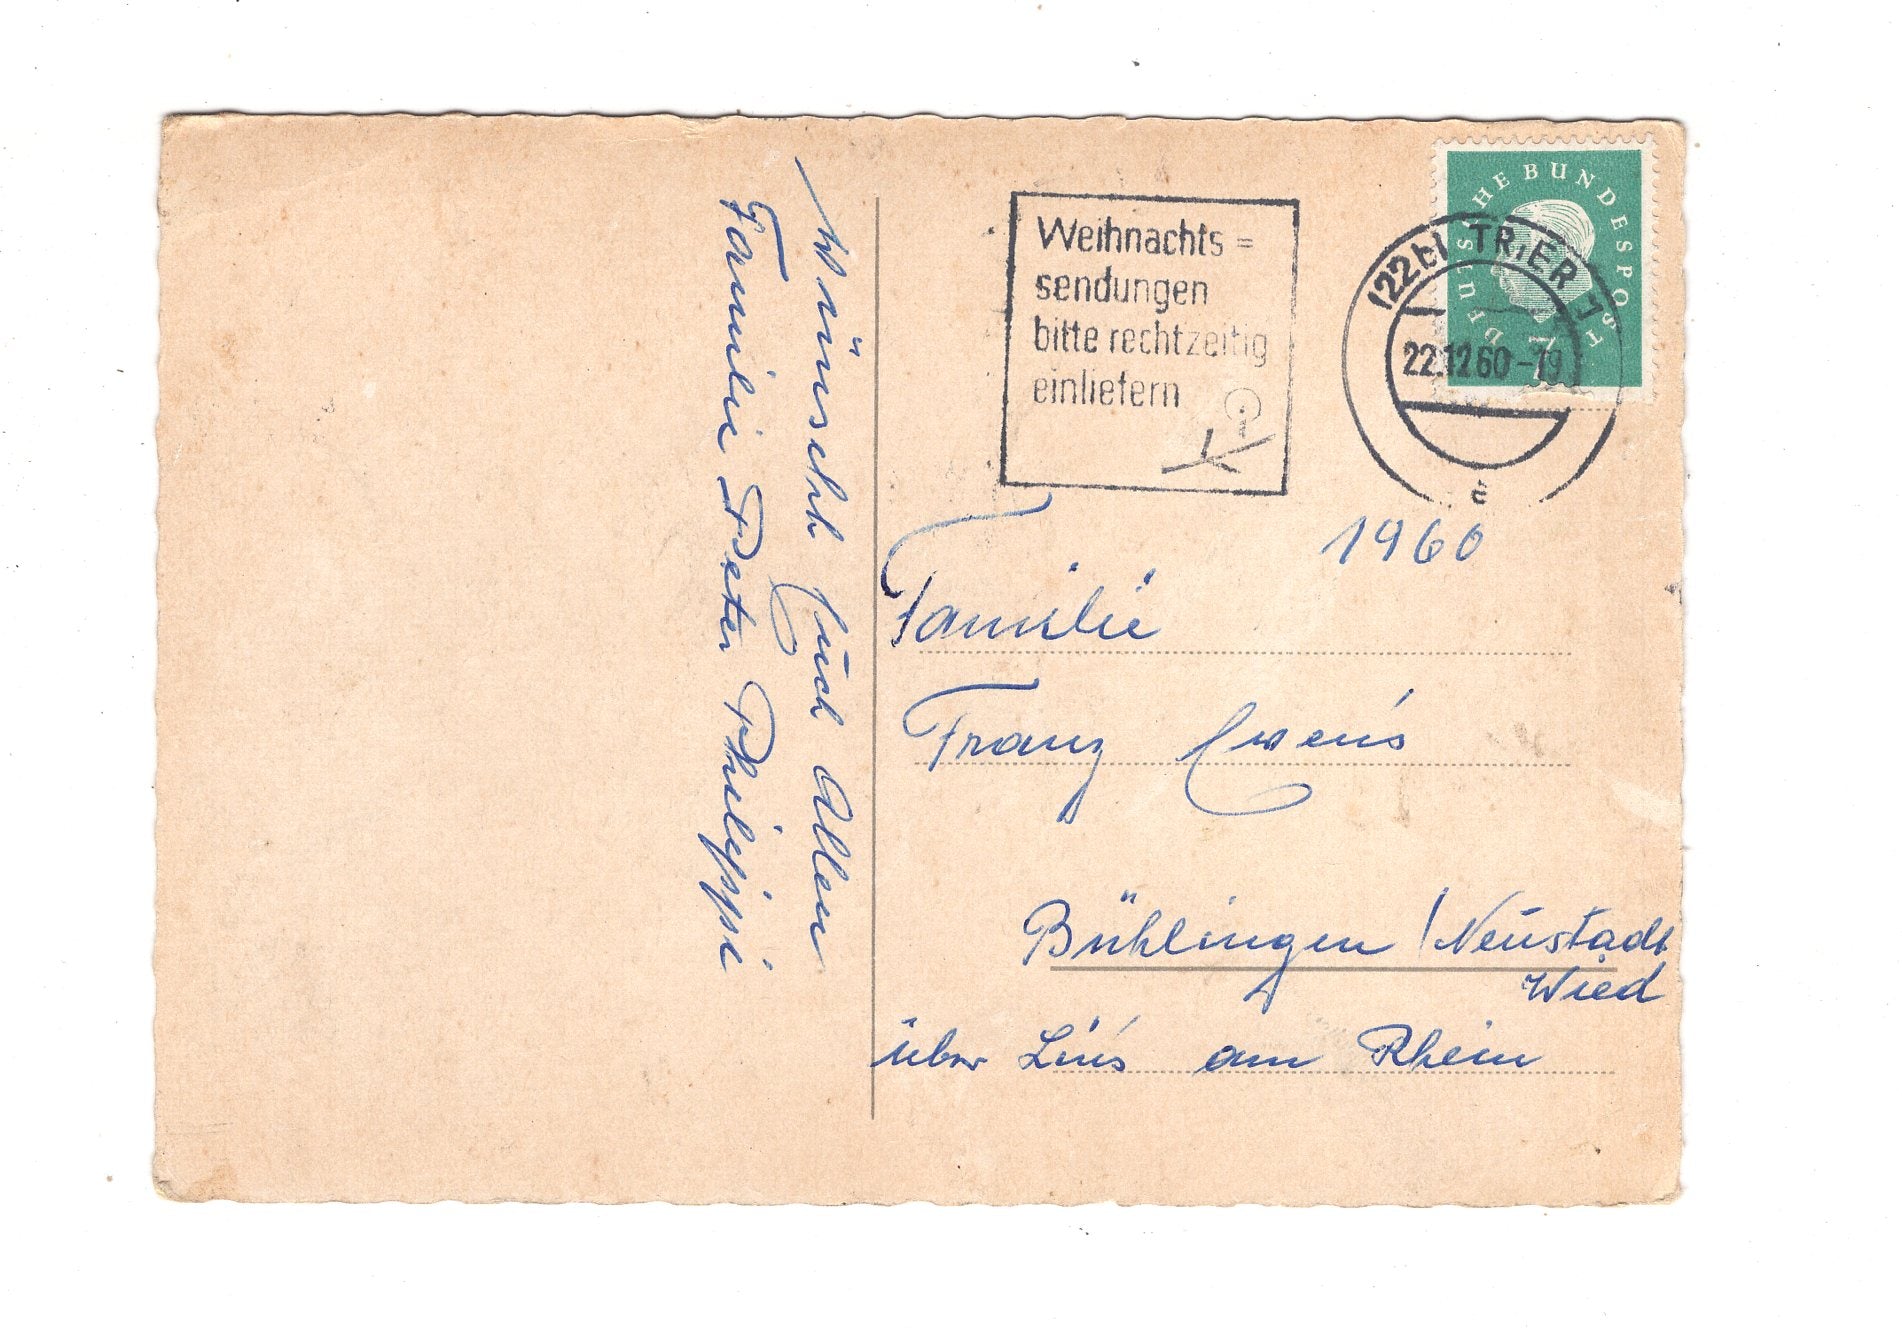 Wünscht Euch Allen
Familie Peter Philippi
Weihnachts=
sendungen
bitte rechtzeitig
einliefern
DEUTSCHE BUNDESPOST
(22b) TRIER 1
22.12.60-19
c
1960
Familie
Franz Ewens
Bühlingen / Neustadt
Wied
über Lins am Rhein